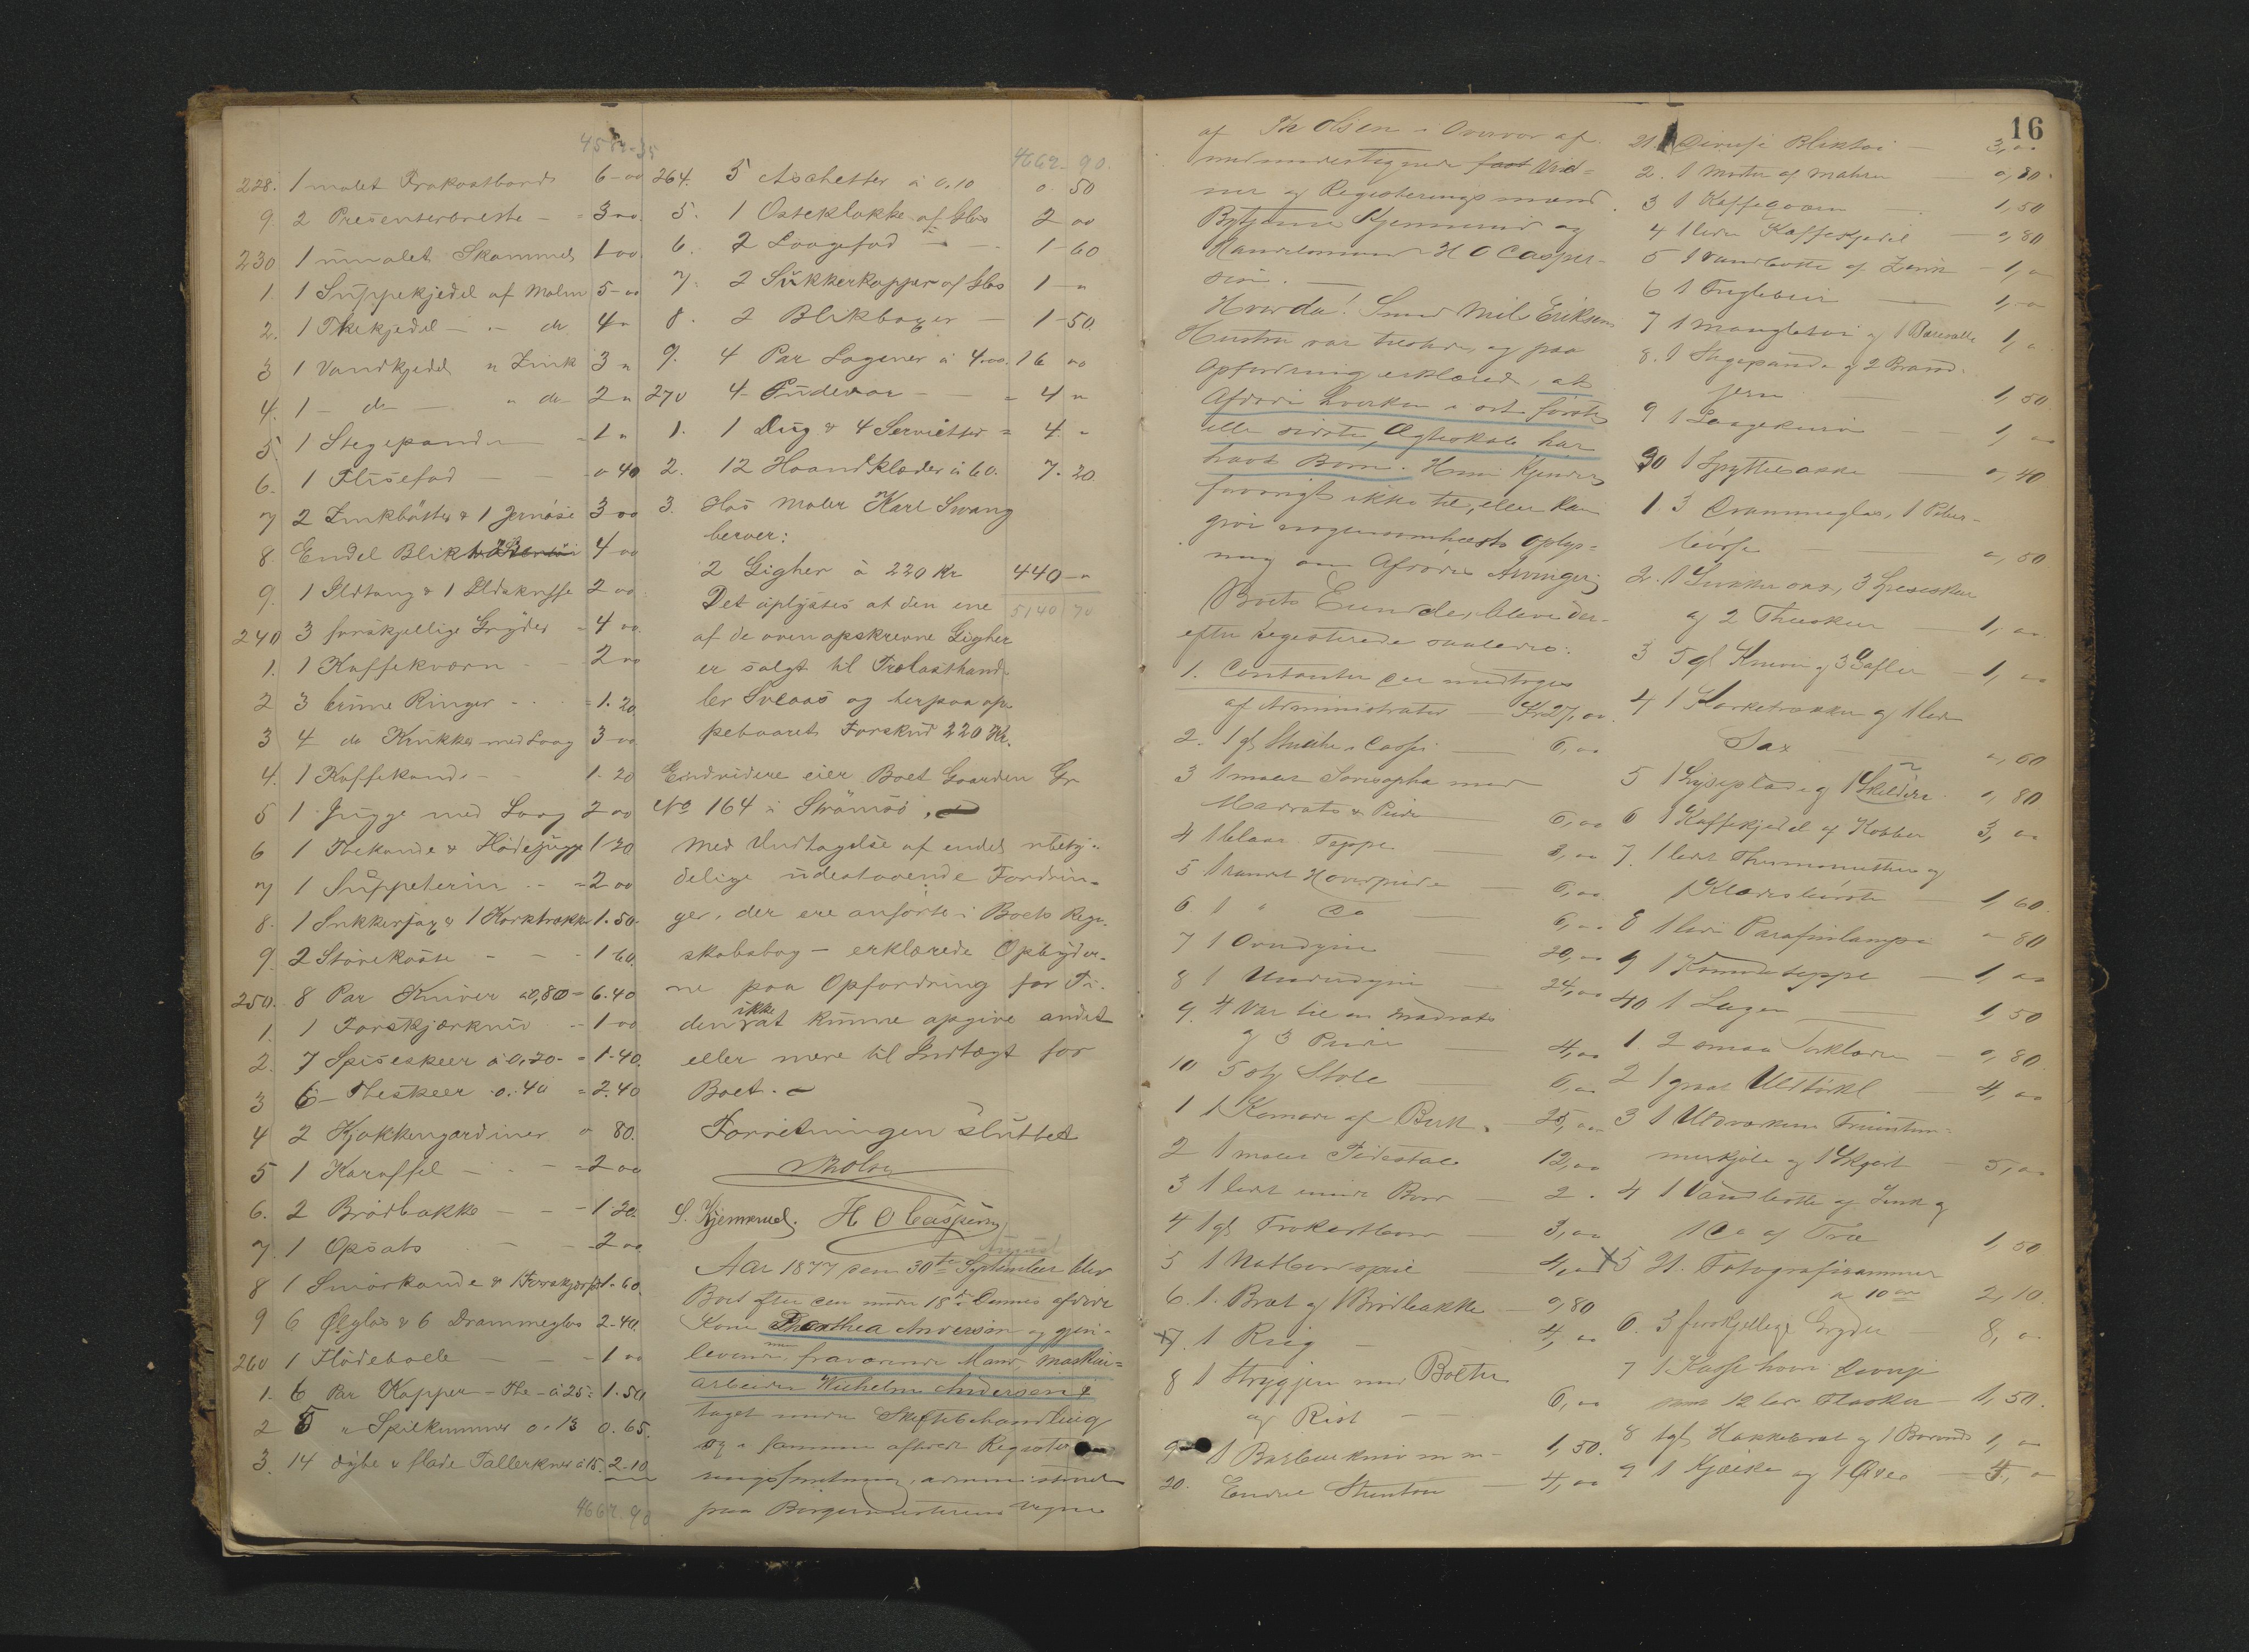 458.35
228. 1 malet Frokostbord 6-00
9. 2 Presenterbrette - = 3-00.
230 1 umalet Skammel 1-00
1. 1 Suppekjedel af Malm 5-00
2. 1 Thekjedel - " - do 4-"
3 1 Vandkjedel " Zink 3 "
4. 1 - do - " do 2 "
5. 1 Stegepande - 1 "
6. 1 Flisefad - - 0 40
7 2 Zinkbötter & 1 Jernöse 3 00
8 Endel Blik 4-00
9. 1 Ildtang & 1 Ildskuffe 2 00
240 3 forskjellige Gryder = 4 00.
1. 1 Kaffekværn - - 2 00
2 3 brune Ringer - . - 1. 20
3 4 do Krukker med Laag 3 00
4. 1 Kaffekande - 1. 20
5 1 Jugge med Laag 2 00
6 1 Thekande & Flödejugge 1-20
7 1 Suppeterin - = 2 00
8. 1 Sukkersax & 1 Korktrækker 1. 50.
9. 2 Stövekoste - - - 1 60.
250. 8 Par Kniver a 0,80 = 6. 40
1. 1 Forskjærkniv - 1-00
2. 7 Spiseskeer à 0,20 - = 1-40.
3 6 - Theskeer 0. 40 = 2. 40
4 2 Kjøkkengardiner 0 80.
5 1 Karaffel - - = 2 00
6. 2 Brödbakke - - - 1. 20.
7. 1 Opsats - - 2 00
8 1 Smörkande & 1 Forskjærfad 1. 60.
9 6 Ølglas & 6 Drammeglas 2-40.
260 1 Flödebolle - - - 1 00
1. 6 Par Kopper - The - à 25 = 1. 50
2 5 " Spilkummer 0. 13 0. 65.
3. 14 dybe & flade Tallerkner à 15. 2-10
4662. 90
4662 - 90.
264. 5 Aschetter à 0.10 0. 50
5. 1 Osteklokke af Glas 2 00
6. 2 Laagefad - " - 1-60
7. 2 Sukkerkopper af Glas 1-"
8. 2 Blikboxer - 1-50.
9. 4 Par Lagener à 4.00. 16 00
270 4 Pudevar - - = 4 "
1. 1 Dug & 4 Servietter = 4. "
2. 12 Haandklæder à 60. 7. 20.
3. Hos Maler Karl Svang
beroer:
2 Gigher à 220 Kr 440-"
Det oplystes at den ene 5140 70
af de ovenopskrevne Gigher
er solgt til Trælasthand-
ler Sveaas og herpaa op-
pebaaret Forskud 220 Kr.
Endvidere eier Boet Gaarden Gr
No 164 i Strömsö.
Med Undtagelse af endel ubety-
delige udestaaende Fordrin-
ger, der ere anförte i Boets Regn-
skabsbog - erklærede Opbyder-
ne paa Opfordring for Ti-
den ikke at kunne opgive andet
eller mere til Indtægt for
Boet.
Forretningen sluttet
Th Olsen
S. Kjemmerud. H O Caspersen
August
Aar 1877 den 30te September blev
Boet efter den under 18de Dennes afdøde
Kone Dorthea Andersen og gjen-
levende, fraværende Mand, Maskin-
arbeider Wilhelm Andersen
taget under Skiftebehandling
og i samme afholdt Registe-
ringsforretning, administreret
paa Borgermesterens Vegne
16
af Th Olsen i Overvær af
medundertegnede fast Vid-
ner og Registeringsmænd
Bytjener Kjemmerud og
Handelsmand H O Casper-
sen. -
Hvorda! Smed Mil Eriksens
Hustru var tilstede, og paa
Opfordring erklærede, at
Afdøde hverken i sit første
eller sidste Ægteskab har
havt Børn. Hun kjender
forøvrigt ikke til, eller kan
give nogensomhelst Oplys-
ning om Afdødes Arvinger;
Boets Eiendele bleve der-
efter registerede saaledes:
1. Contanter der modtoges
af Administrator - Kr 27,00.
2. 1 gl 6,00
3 1 malet Sovesopha med
Madrats & Pude 6,00
4 1 blaat Teppe
5 1 randet Hovedpude 6,00
6 1 " do 6,00
7 1 Overdyne 20,00
8 1 Underdyne 24,00
9. 4 Var til en Madrats
og 3 Puder 4,00
10 5 Stole 6,00
1 1 Komode af Birk. 25,00
2 1 malet Pidestal 12,00
3 1 lidet Bord - 2.
4 1 gl Frokostbord 3,00
5 1 Natbordspeil 4,00
6. 1 Bræt og 1 Brödbakke 0,80
7. 1 Krug - 4,00
8 1 Strygjern med Bolter
og Rist - 6,00
9 1 Barberkniv m m - 1,50.
20. Endel Stentøi 4,00
21. Diverse Bliktøi 3,00
2. 1 Morter af Malm 0,80.
3 1 Kaffekværn 1,50
4 1 liden Kaffekjedel 0,80
5 1 Vandbøtte af Zink - 1,00
6 1 Fuglebuur 1,00
7 1 Mangletræ og 1 1,00
8. 1 Stegepande og 2 Brand-
jern 1,50.
9 1 Laagekurv 1,00
30 1 Spyttebakke 0,40
1 3 Drammeglas, 1 Peber-
bøsse 0,50
2. 1 3 Spiseskeer
og 2 Theskeer 1,00
3 5 gl Knive og 3 Gafler - 1,00
4 1 Korketrækker og 1 liden
Sax 0,60
5 1 Lyseplade og 1 Skilderi 0,80
6 1 Kaffekjedel af Kobber 3,00
7. 1 lidet Thermometer og
1 Klædesbørste 1,60.
8 1 liden Parafinlampe 0 80
9 1 teppe 1,00
40 1 Lagen 1,50
1. 2 smaa 0,80.
2 1 graat Uldtørkl 4,00
3 1
og 1 Skjørt 5,00
4 1 Vandbøtte af Zink og
1 do af Træ 1,50
5 21. Fotografirammer
a 10 øre 2,10.
6. 3 forskjellige Gryder - 8,00
7 1 Kasse
12 Flasker - 1,50.
8 1 gl Hakkebræt og 1 1,00
9 1 Kjælke og 1 Øxe